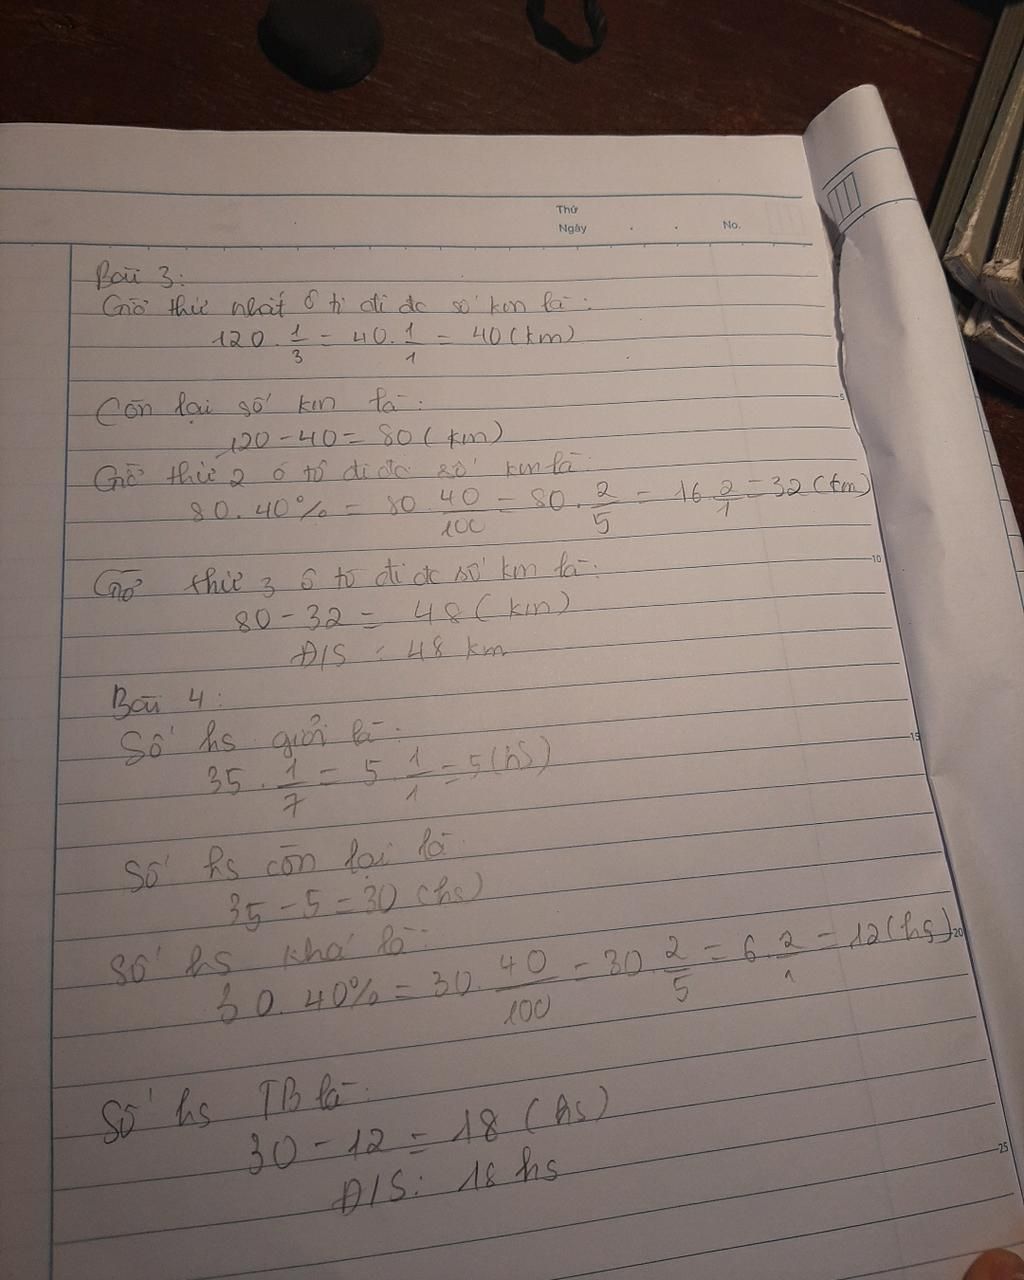 Thứ
Ngày . . No.
Bài 3:
Giờ thứ nhất ô tô đi đc số km là:
120 . 1/3 = 40 . 1/1 = 40 (km)
Còn lại số km là:
120 - 40 = 80 (km)
Giờ thứ 2 ô tô đi đc số km là:
80. 40% = 80. 40/100 = 80. 2/5 = 16. 2/1 = 32 (km)
Giờ thứ 3 ô tô đi đc số km là:
80 - 32 = 48 (km)
Đ/S : 48 km
Bài 4:
Số hs giỏi là:
35 . 1/7 = 5 . 1/1 = 5 (hs)
Số hs còn lại là:
35 - 5 = 30 (hs)
Số hs khá là:
30. 40% = 30. 40/100 = 30. 2/5 = 6. 2/1 = 12 (hs)
Số hs TB là:
30 - 12 = 18 (hs)
Đ/S: 18 hs
5
10
15
20
25